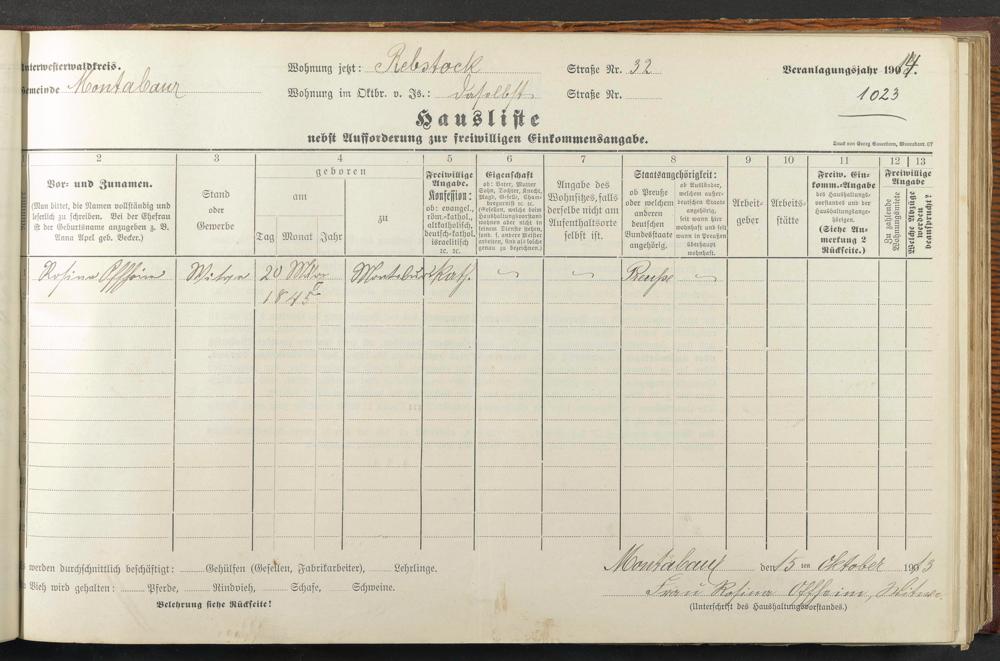 Unterwesterwaldkreis.
Gemeinde Montabaur
Wohnung jetzt: Rebstock Straße Nr. 32
Wohnung im Oktbr. v. Js.: daselbst Straße Nr.
Veranlagungsjahr 1914.
1023
Hausliste
nebst Aufforderung zur freiwilligen Einkommensangabe.
Druck von Georg Sauerborn, Montabaur. 07
2 3 4 5 6 7 8 9 10 11 12 13
Vor- und Zunamen.
(Man bittet, die Namen vollständig und
leserlich zu schreiben. Bei der Ehefrau
ist der Geburtsname anzugeben z. B.
Anna Apel geb. Becker.)
Stand
oder
Gewerbe
geboren
am
zu
Tag Monat Jahr
Freiwillige
Angabe.
Konfession:
ob: evangel.,
röm.-kathol.,
altkatholisch,
deutsch-kathol.
israelitisch
ec. ec.
Eigenschaft
ob: Vater, Mutter
Sohn, Tochter, Knecht,
Magd, Geselle, Cham-
bregarnist ec. ec.
(Gesellen, welche beim
Haushaltungsvorstand
wohnen aber nicht in
seinem Dienste stehen,
sond. f. andere Meister
arbeiten, sind als solche
genau zu bezeichnen.)
Angabe des
Wohnsitzes, falls
derselbe nicht am
Aufenthaltsorte
selbst ist.
Staatsangehörigkeit:
ob Preuße
oder welchem
anderen
deutschen
Bundesstaate
angehörig.
ob Ausländer,
welchem außer-
deutschen Staate
angehörig,
seit wann hier
wohnhaft und seit
wann in Preußen
überhaupt
wohnhaft.
Arbeit-
geber
Arbeits-
stätte
Freiw. Ein-
komm.-Angabe
des Haushaltungs-
vorstandes und der
Haushaltungsange-
hörigen.
(Siehe An-
merkung 2
Rückseite.)
Freiwillige
Angabe
Zu zahlende
Wohnungsmiete
Welche Abzüge
werden
beansprucht?
Rosina Offheim Witwe 20 März Montabaur kath. – – Preuße –
1845
werden durchschnittlich beschäftigt: Gehülfen (Gesellen, Fabrikarbeiter), Lehrlinge.
Vieh wird gehalten: Pferde, Rindvieh, Schafe, Schweine.
Belehrung siehe Rückseite!
Montabaur den 15 ten Oktober 1913
Frau Rosina Offheim, Witwe.
(Unterschrift des Haushaltungsvorstandes.)